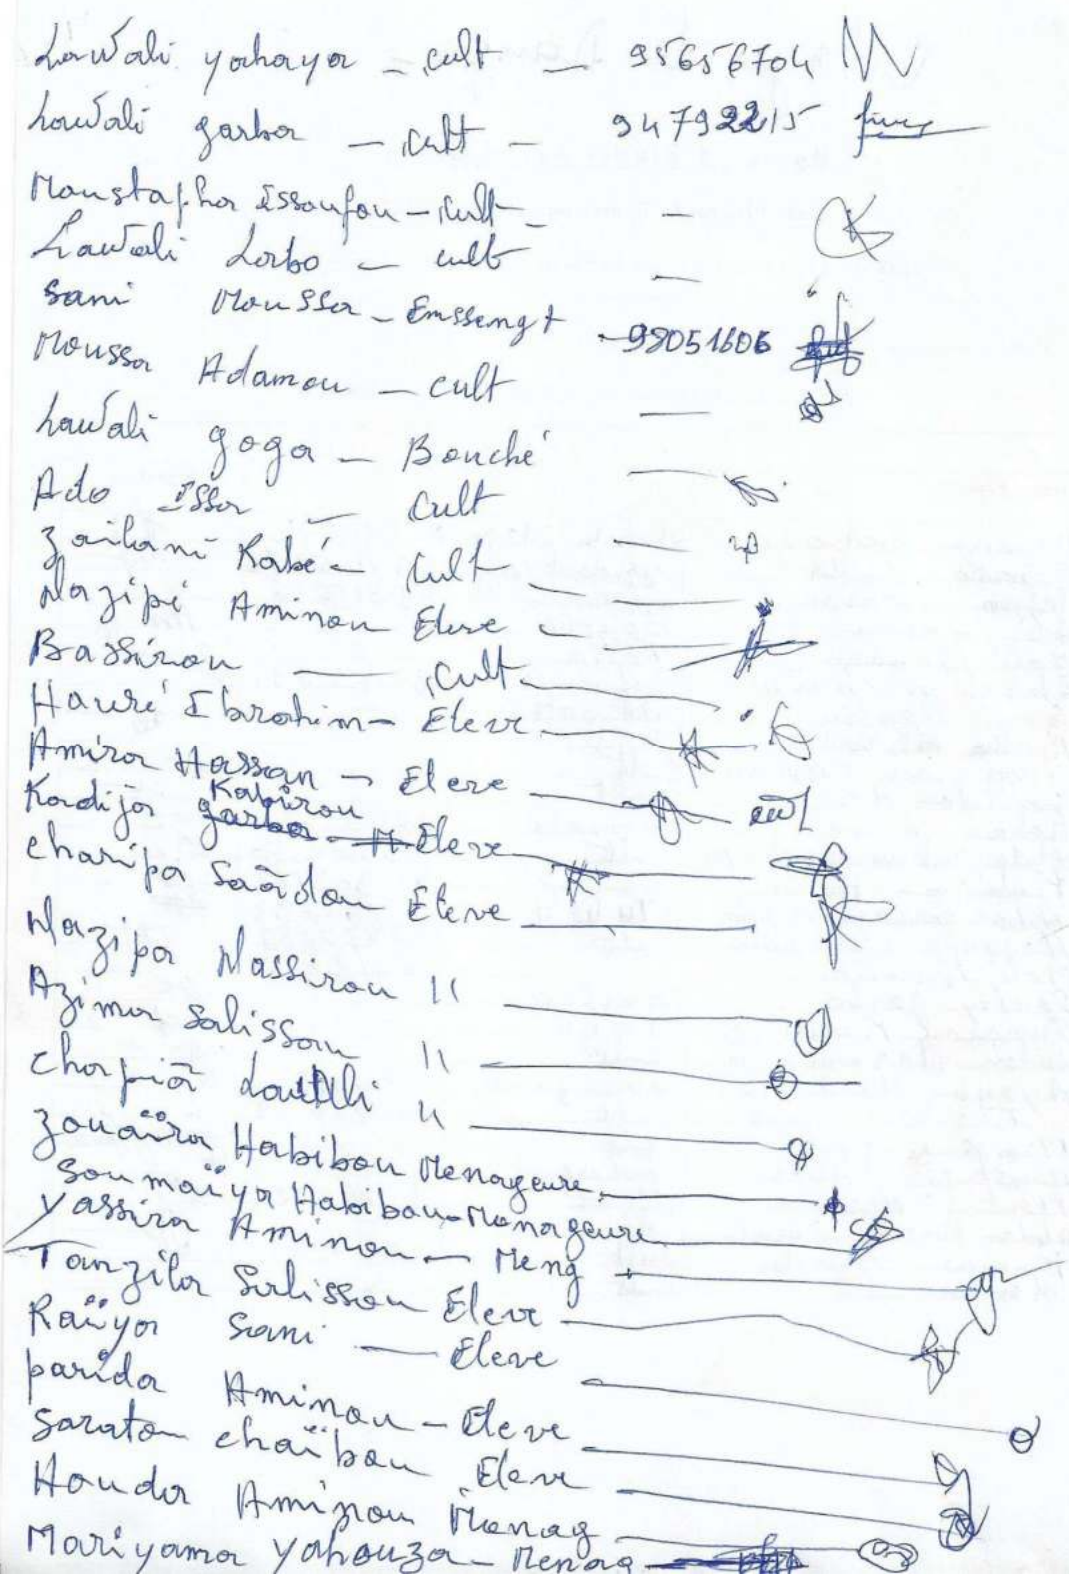 Lawali yahaya - cult - 95656704
Lawali garba - cult - 94792215
Moustapha Issoufou - cult - -
Lawali Labo - cult -
Sani Moussa - Enssengt - 98051606
Moussa Adamou - cult
Lawali goga - Bouché
Ado Issa - cult
Zailani Kabé - cult
Nazipi Aminou Eleve -
Bassirou - cult
Hawré Ibrahim - Eleve
Amira Hassan - Eleve
Kadija Kabirou Eleve
charipa Saādou Eleve
Nazipa Nassirou "
Azima Salissou "
chapia Lawali "
Zouaïra Habibou Menageure
Soumaïya Habibou - Menageure
Yassira Aminou - Meng
Tanzila Salissou Eleve
Raïya Sani - Eleve
parida Aminou - Eleve
Saratou chaïbou Eleve
Houda Aminou Menag
Mariyama Yahouza - Menag